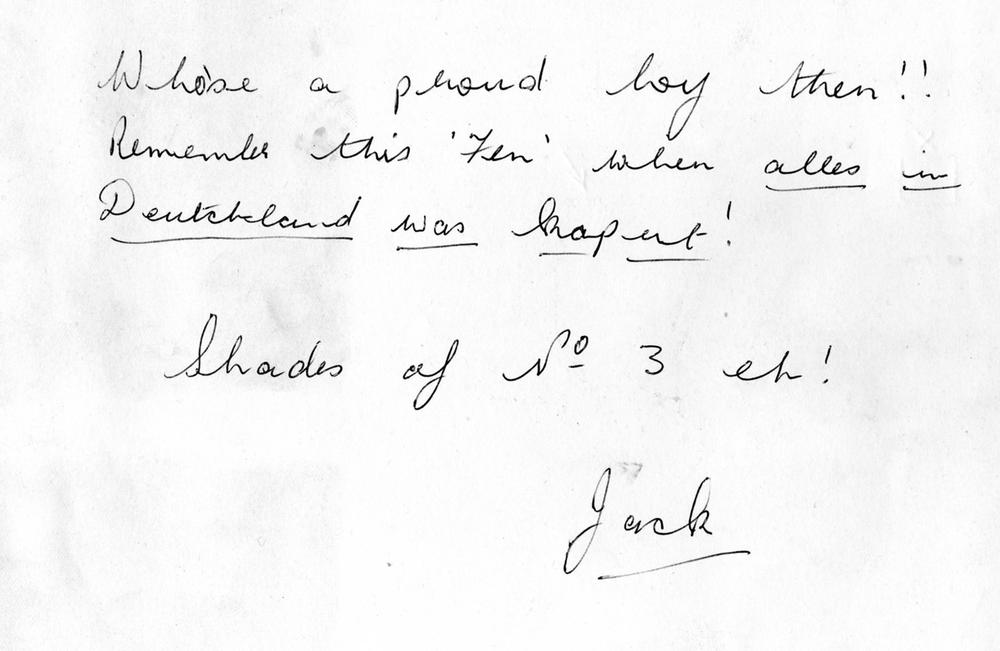 Who'se a proud boy then!!
Remember this 'Fen' when alles in
Deutchland was kaput!
Shades of Nº 3 eh!
Jack